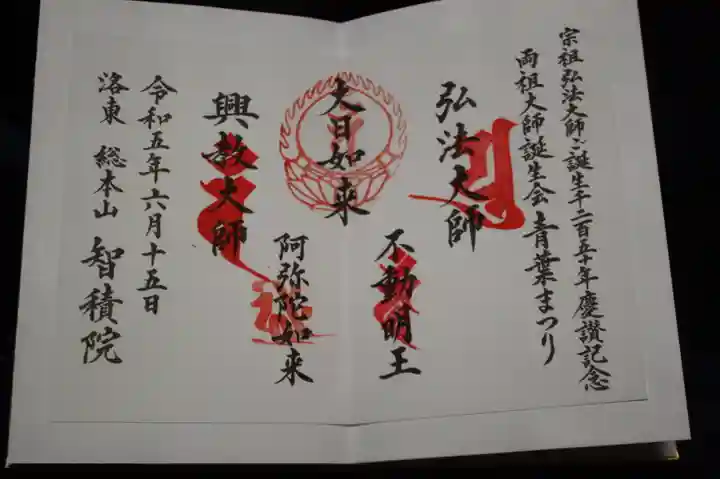 宗祖弘法大師ご誕生千二百五十年慶讃記念
両祖大師誕生会 青葉まつり
弘法大師
不動明王
大日如来
阿弥陀如来
興教大師
令和五年六月十五日
洛東 総本山 智積院